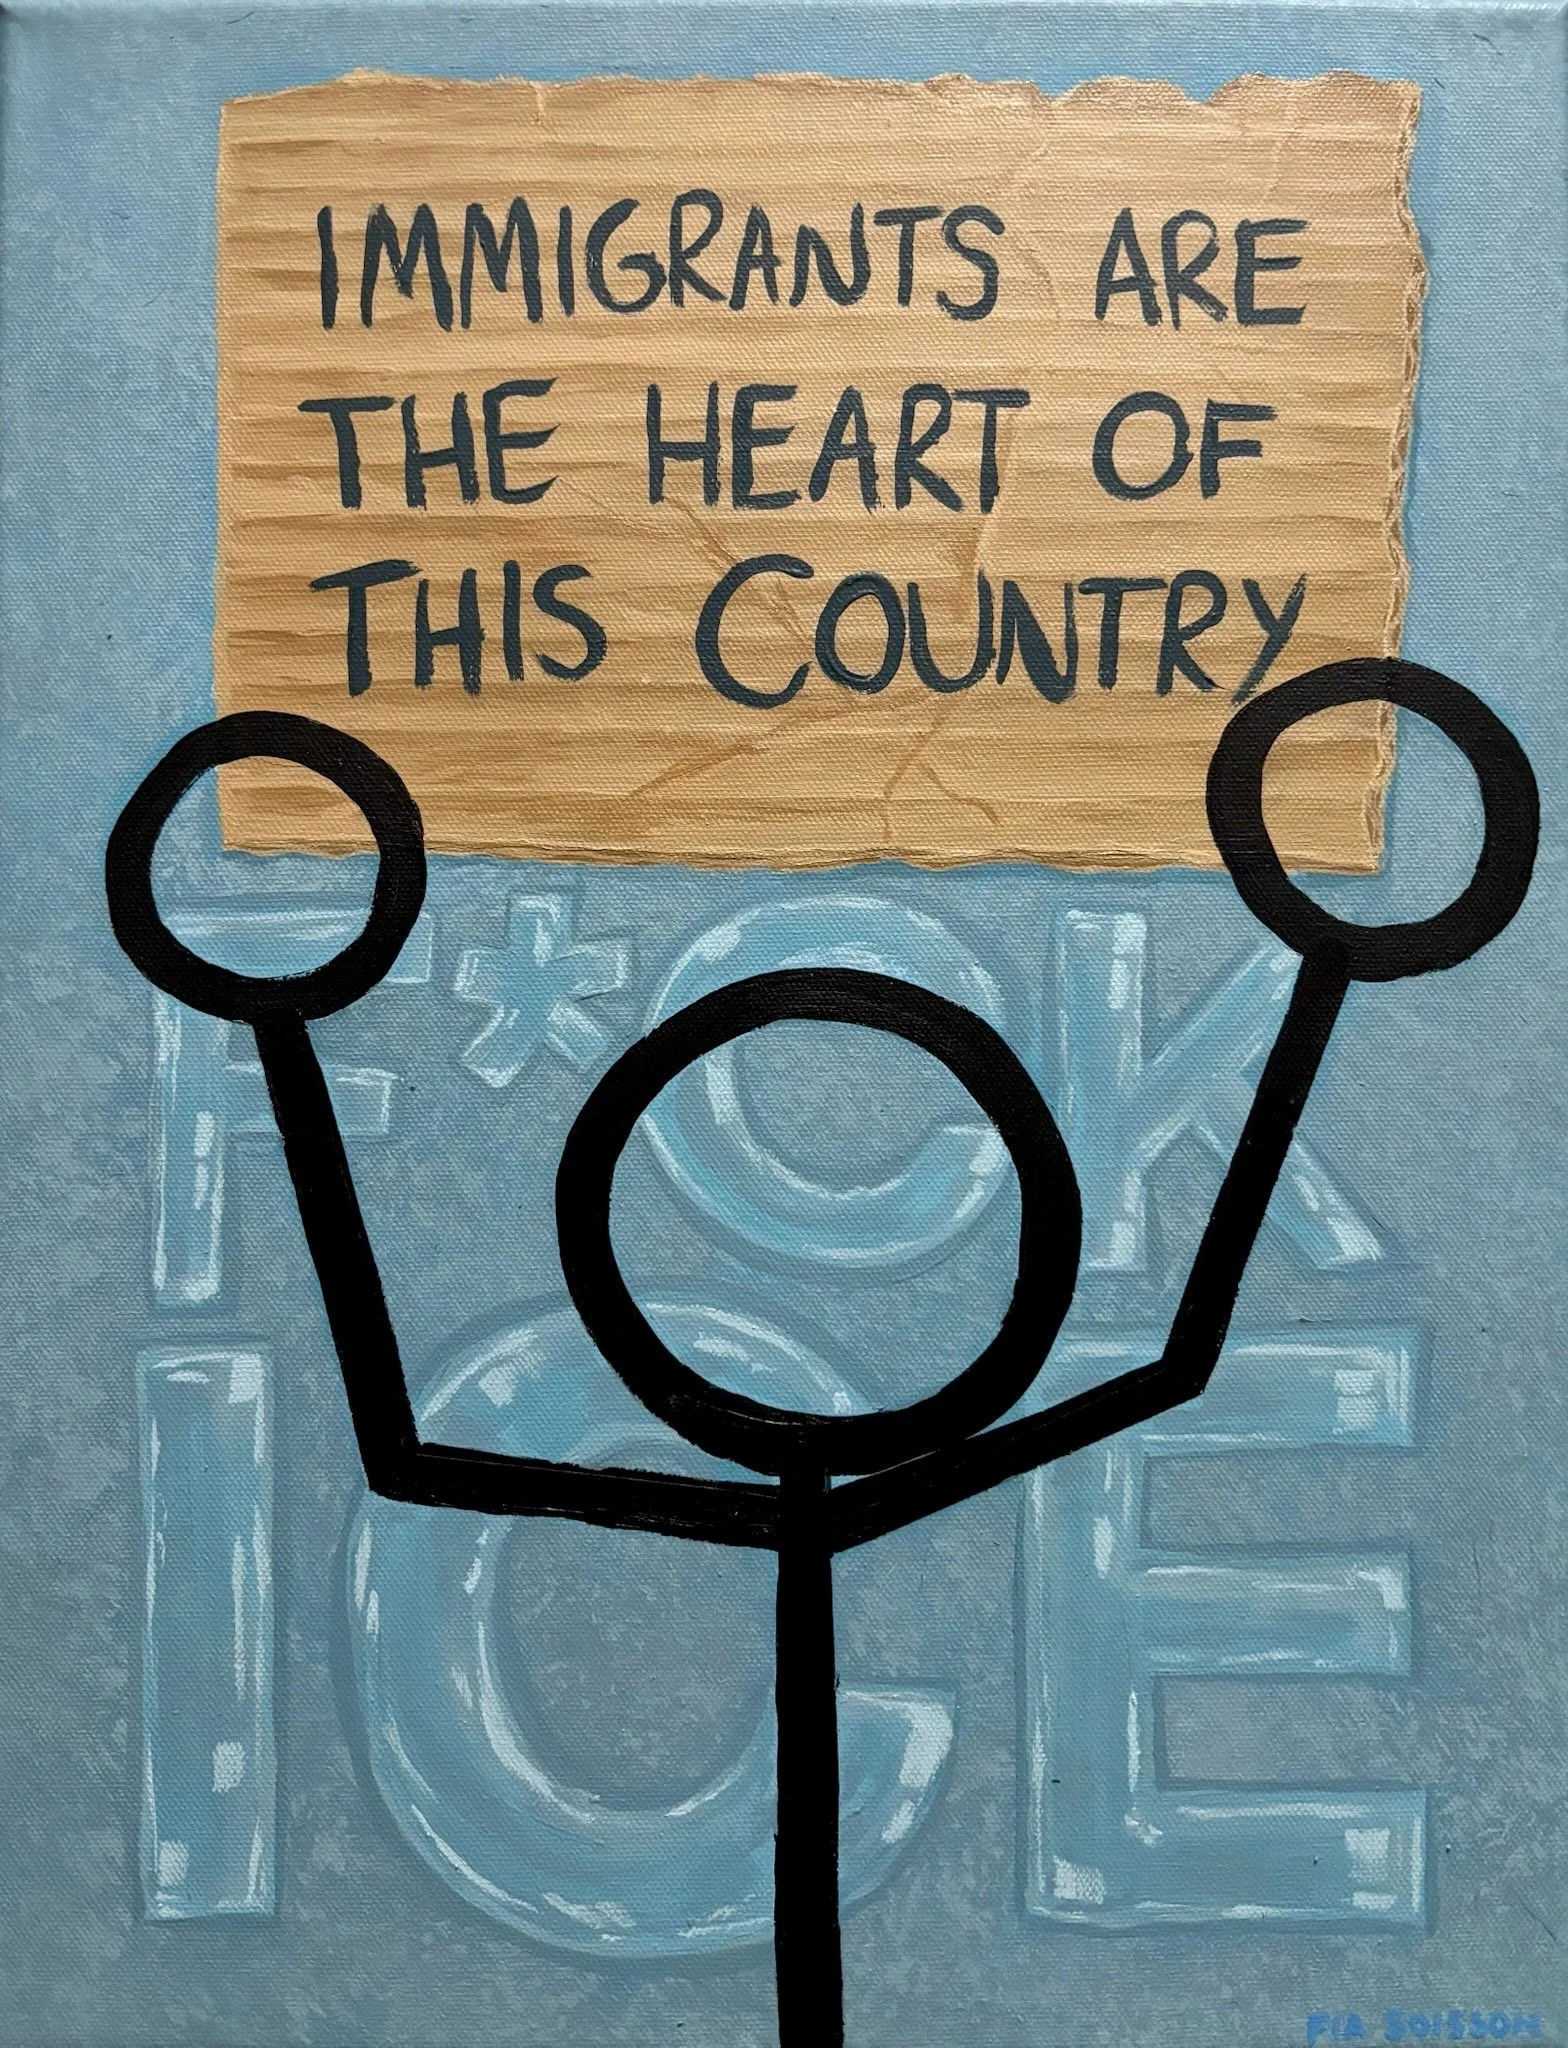 IMMIGRANTS ARE
THE HEART OF
THIS COUNTRY
F*CK
ICE
FIA SOISSON